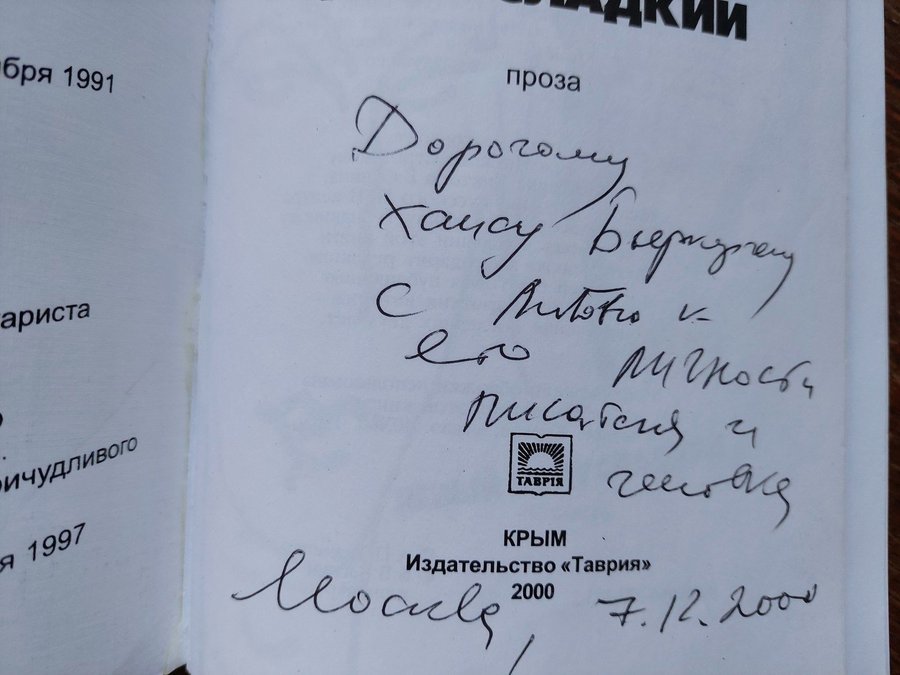 ября 1991
ариста
ричудливого
я 1997
сладкий
проза
Дорогому
Хансу Бьеркегрену
с любовью к
его личности
писателя и
человека
ТАВРІЯ
КРЫМ
Издательство «Таврия»
2000
Москва, 7.12.2000